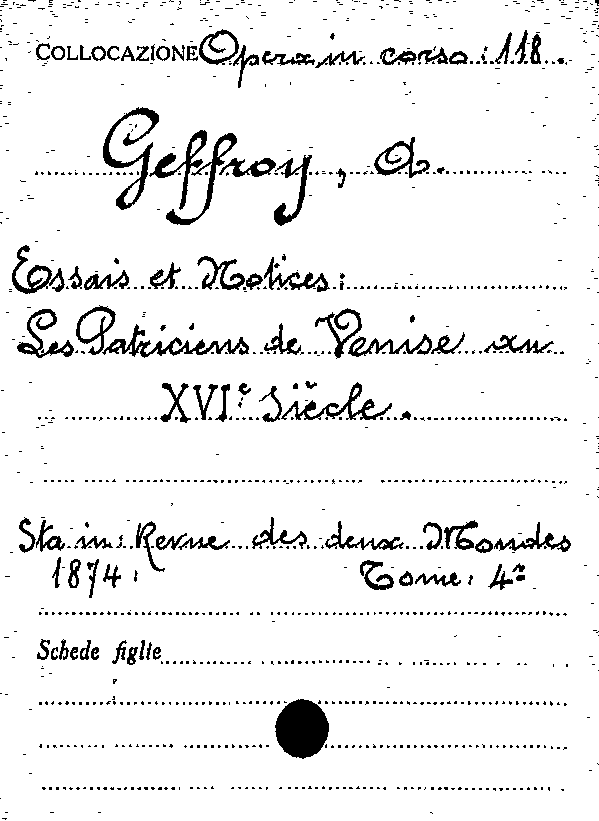 COLLOCAZIONE Opera in corso: 118.
Geffroy, A.
Essais et Notices:
Les Patriciens de Venise au
XVIe Siècle.
Sta in: Revue des deux Mondes
1874: Tome: 4º
Schede figlie